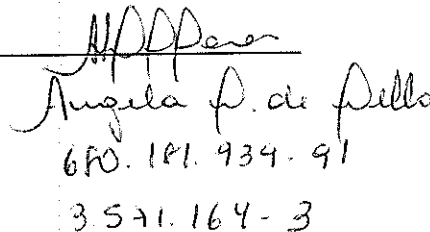 Angela P. de Pello
680.181.934-91
3.571.164-3